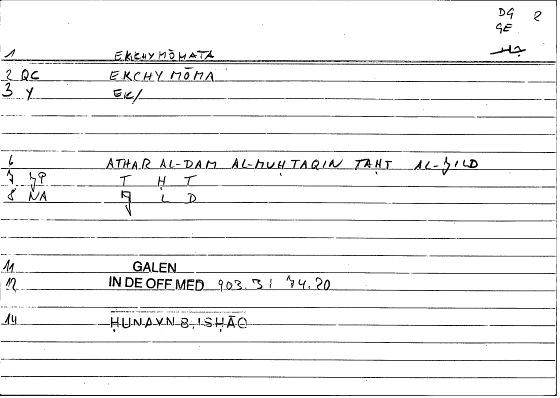 DG 2
GE
جلد
1 EKCHYMŌMATA
2 QC EKCHYMŌMA
3 Y EK/
6 ATHAR AL-DAM AL-MUḤTAQIN TAḤT AL-JILD
7 JP T Ḥ T
8 NA J L D
11 GALEN
12 IN DE OFF MED 903.31 74.20
14 ḤUNAYN B. ISḤĀQ